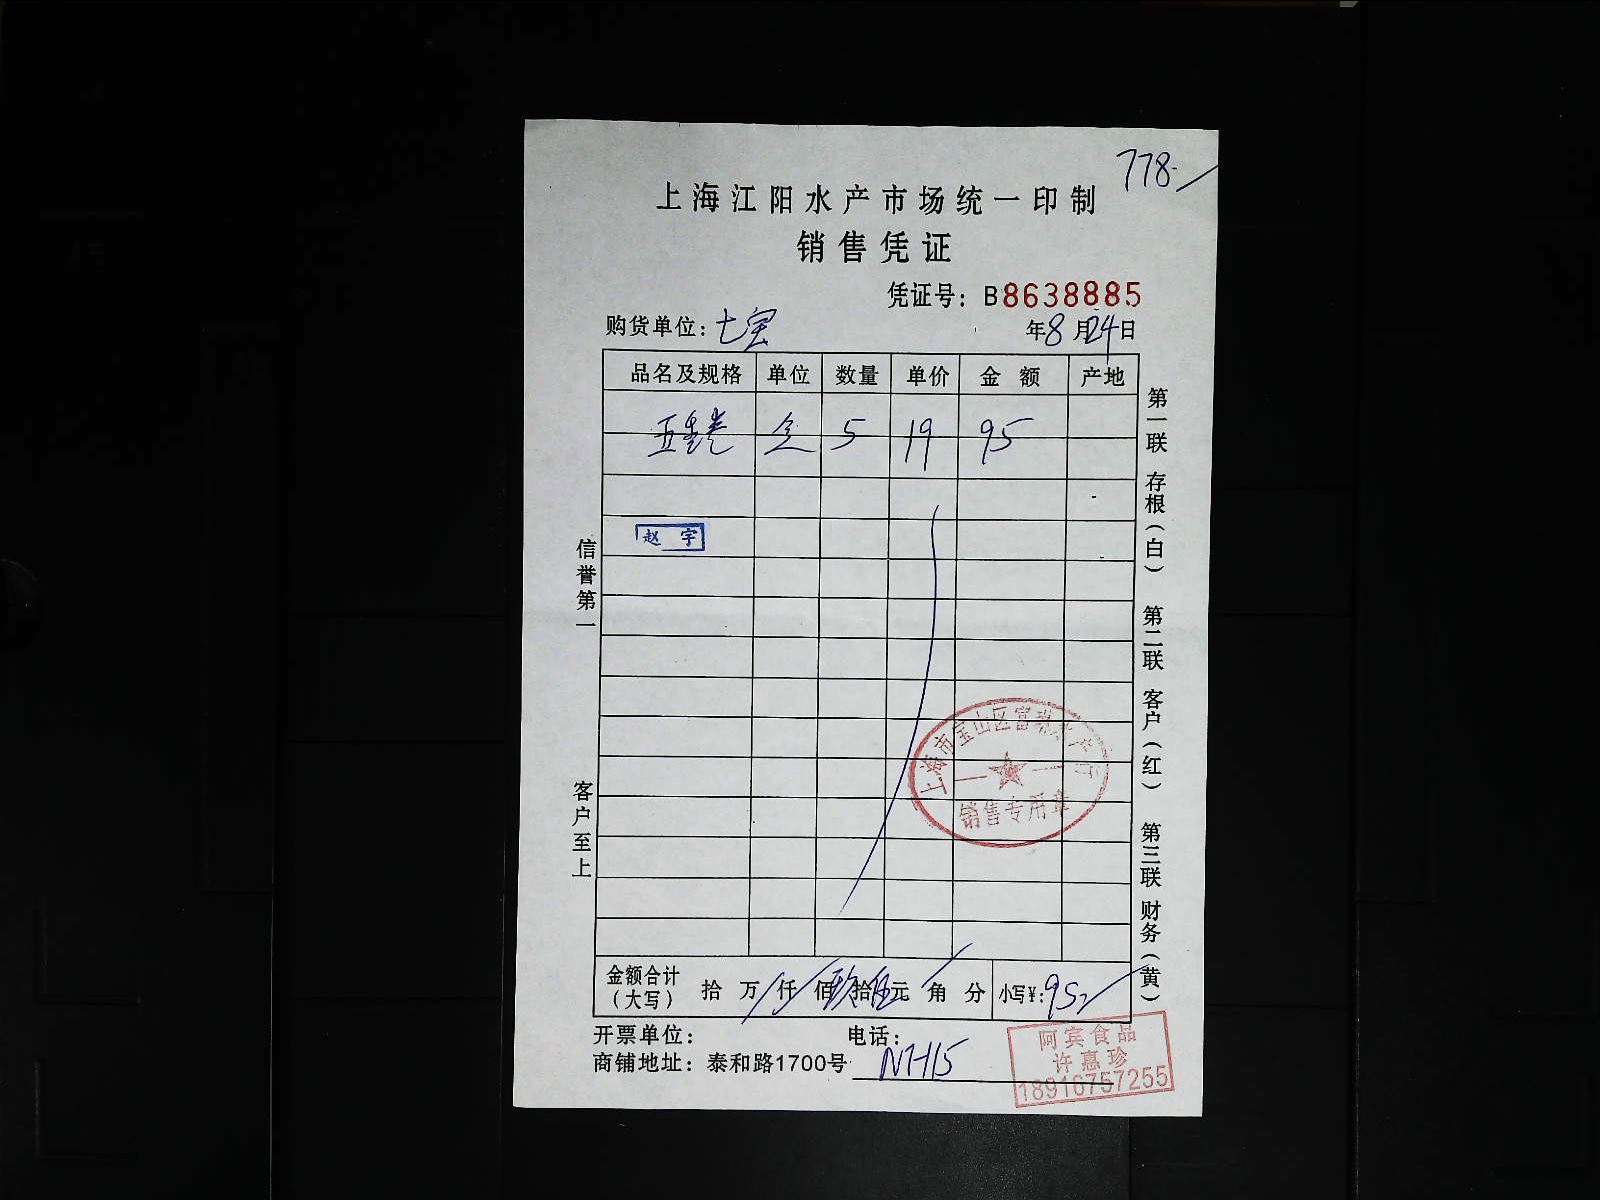 778-
上海江阳水产市场统一印制
销售凭证
凭证号：B8638885
购货单位：七宝
年8月24日
品名及规格 单位 数量 单价 金额 产地
5 19 95
赵宇
信誉第一
客户至上
第一联 存根（白） 第二联 客户（红） 第三联 财务（黄）
上海市宝山区富 水产
销售专用章
金额合计（大写） 拾 万 仟 佰 玖拾伍元 角 分 小写¥：95
开票单位： 电话：
商铺地址：泰和路1700号
阿宾食品
许惠珍
18916757255